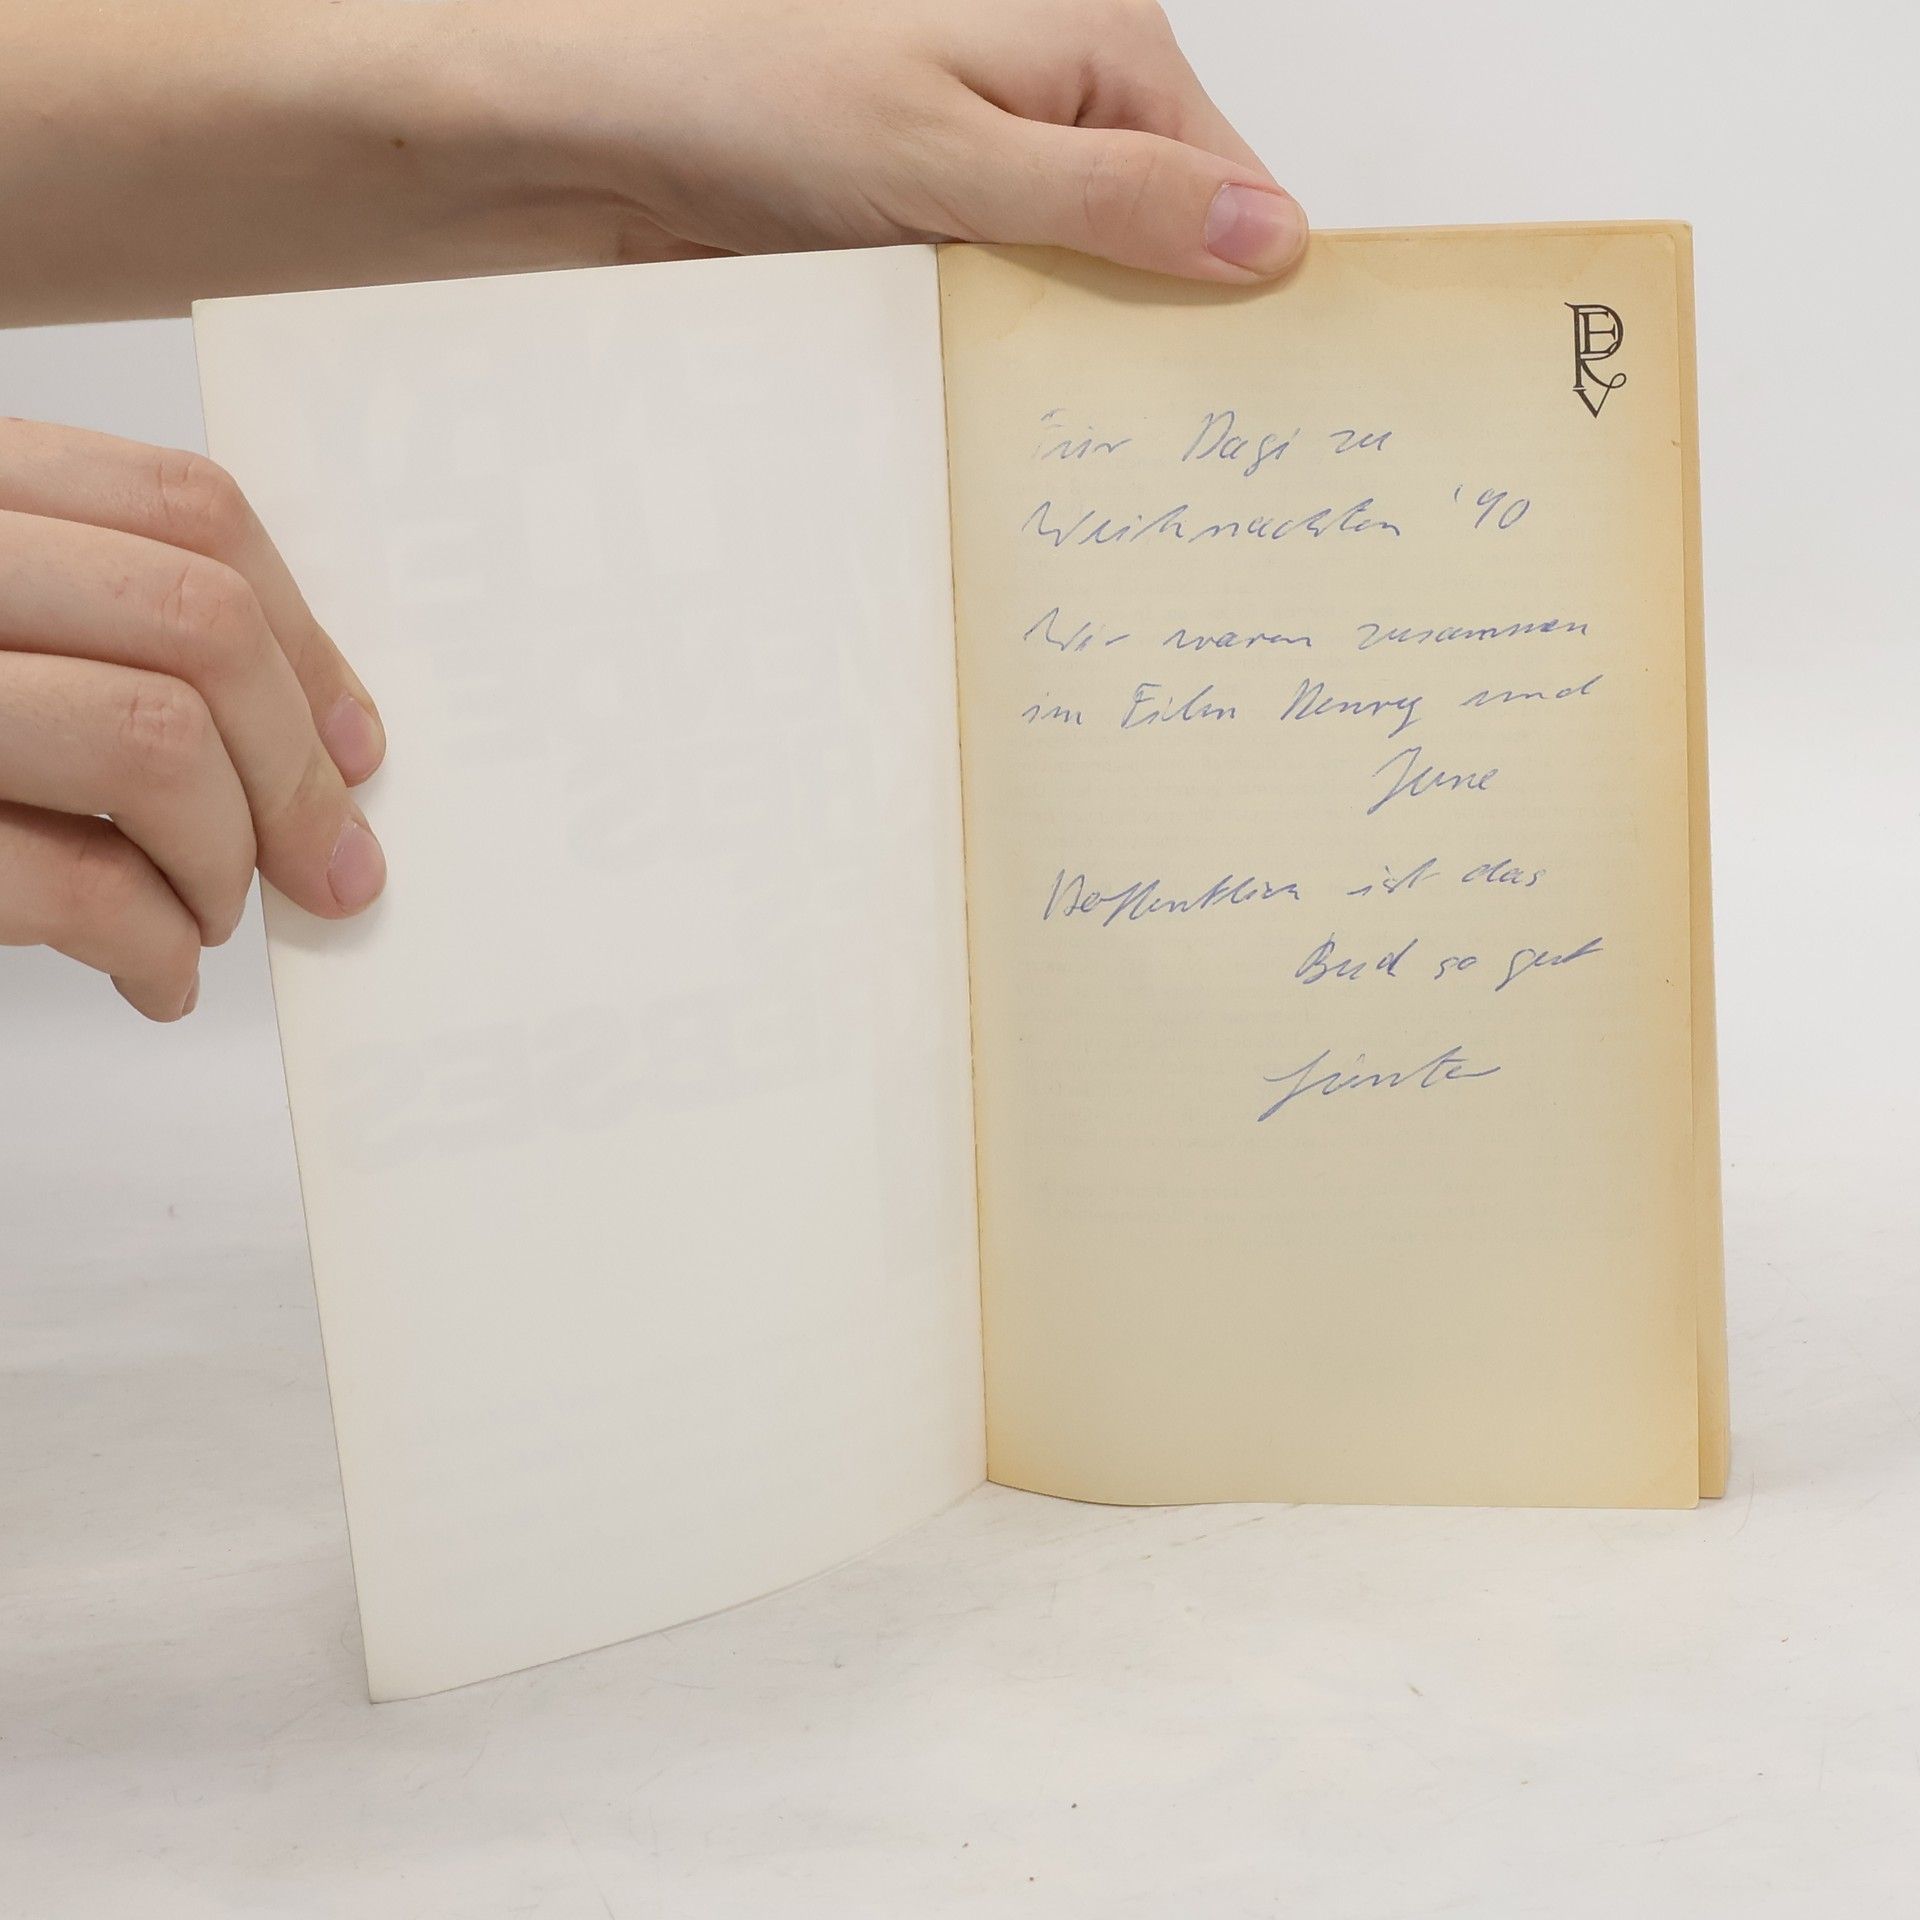 ERV
Für Dagi zu
Weihnachten '90
Wir waren zusammen
im Film Henry und
June
Hoffentlich ist das
Buch so gut
Günter